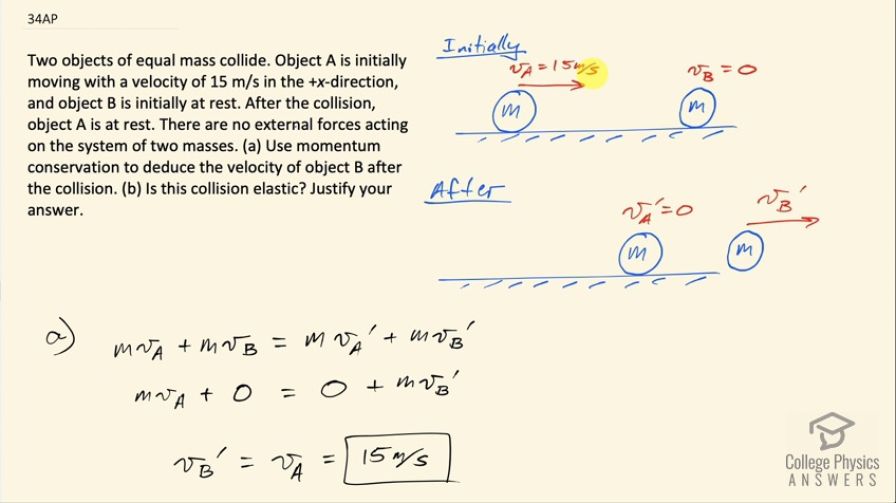 34AP
Two objects of equal mass collide. Object A is initially
moving with a velocity of 15 m/s in the +x-direction,
and object B is initially at rest. After the collision,
object A is at rest. There are no external forces acting
on the system of two masses. (a) Use momentum
conservation to deduce the velocity of object B after
the collision. (b) Is this collision elastic? Justify your
answer.
Initially
v_A = 15 m/s v_B = 0
m m
After
v_A' = 0 v_B'
m m
a) mv_A + mv_B = mv_A' + mv_B'
mv_A + 0 = 0 + mv_B'
v_B' = v_A = 15 m/s
College Physics
ANSWERS